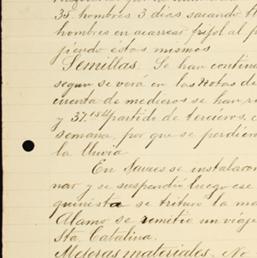 35 hombres 3 dias sacando
hombres en acarrear frijol al
piendo estos mismos
Semillas. Se han
segun se verá en las Notas de
cuenta de medieros se han
y 37. partido de terceros,
semana, por que se
la lluvia
En se instalaron
nar y se suspendió luego ese
quinista se trituró la
Alamo se remitió un viaje
Sta. Catalina.
Mejoras materiales. No